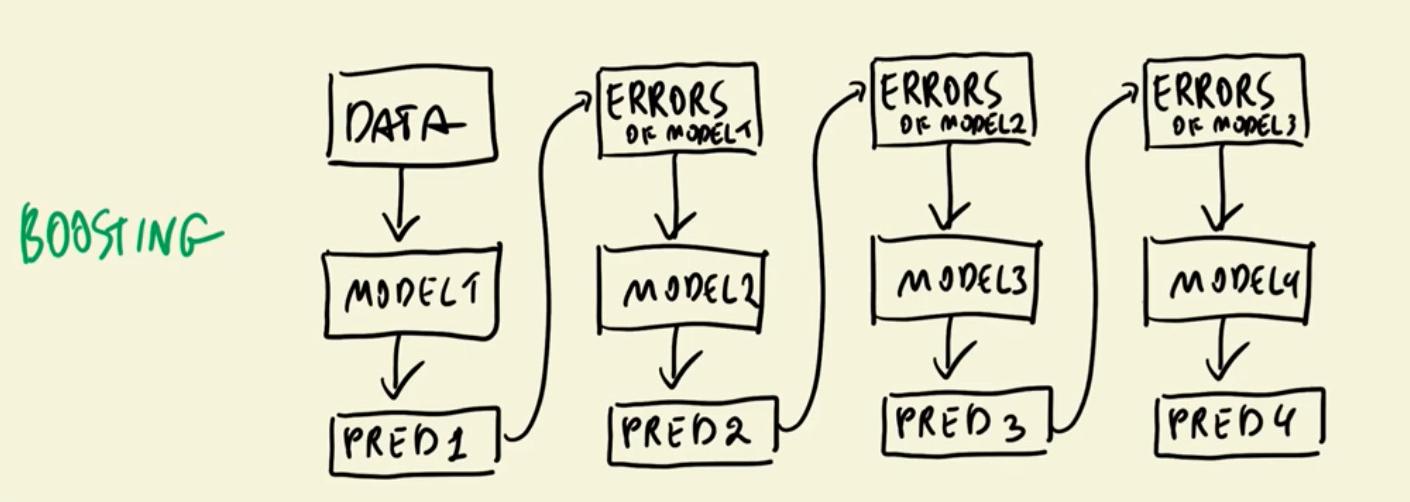 BOOSTING
DATA
MODEL1
PRED1
ERRORS
OF MODEL1
MODEL2
PRED2
ERRORS
OF MODEL2
MODEL3
PRED 3
ERRORS
OF MODEL3
MODEL4
PRED4